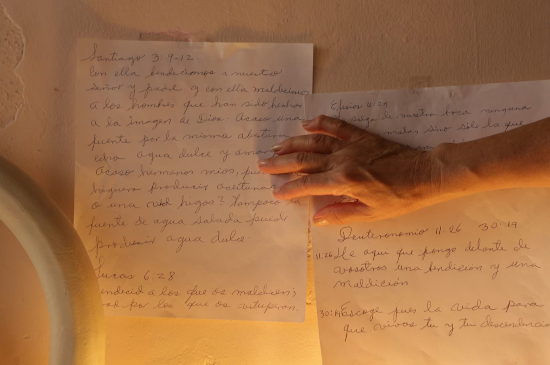 Santiago 3:9-12
Con ella bendecimos a nuestro
señor y padre y con ella maldecimos
a los hombres que han sido hechos
a la imagen de Dios. Acaso una
fuente por la misma abertura
echa agua dulce y amar
Acaso hermanos mios, pue
higuera producir aceitunas
o una vid higos? Tampoco la
fuente de agua salada puede
producir agua dulce.
Lucas 6:28
bendecid a los que os maldicen;
orad por los que os vituperan.
Efesios 4:29
de vuestra boca ninguna
mala, sino sólo la que
Deuteronomio 11:26 30:19
11:26 He aqui que pongo delante de
vosotros una bendición y una
maldición
30:19 Escoge pues la vida para
que vivas tu y tu descendencia